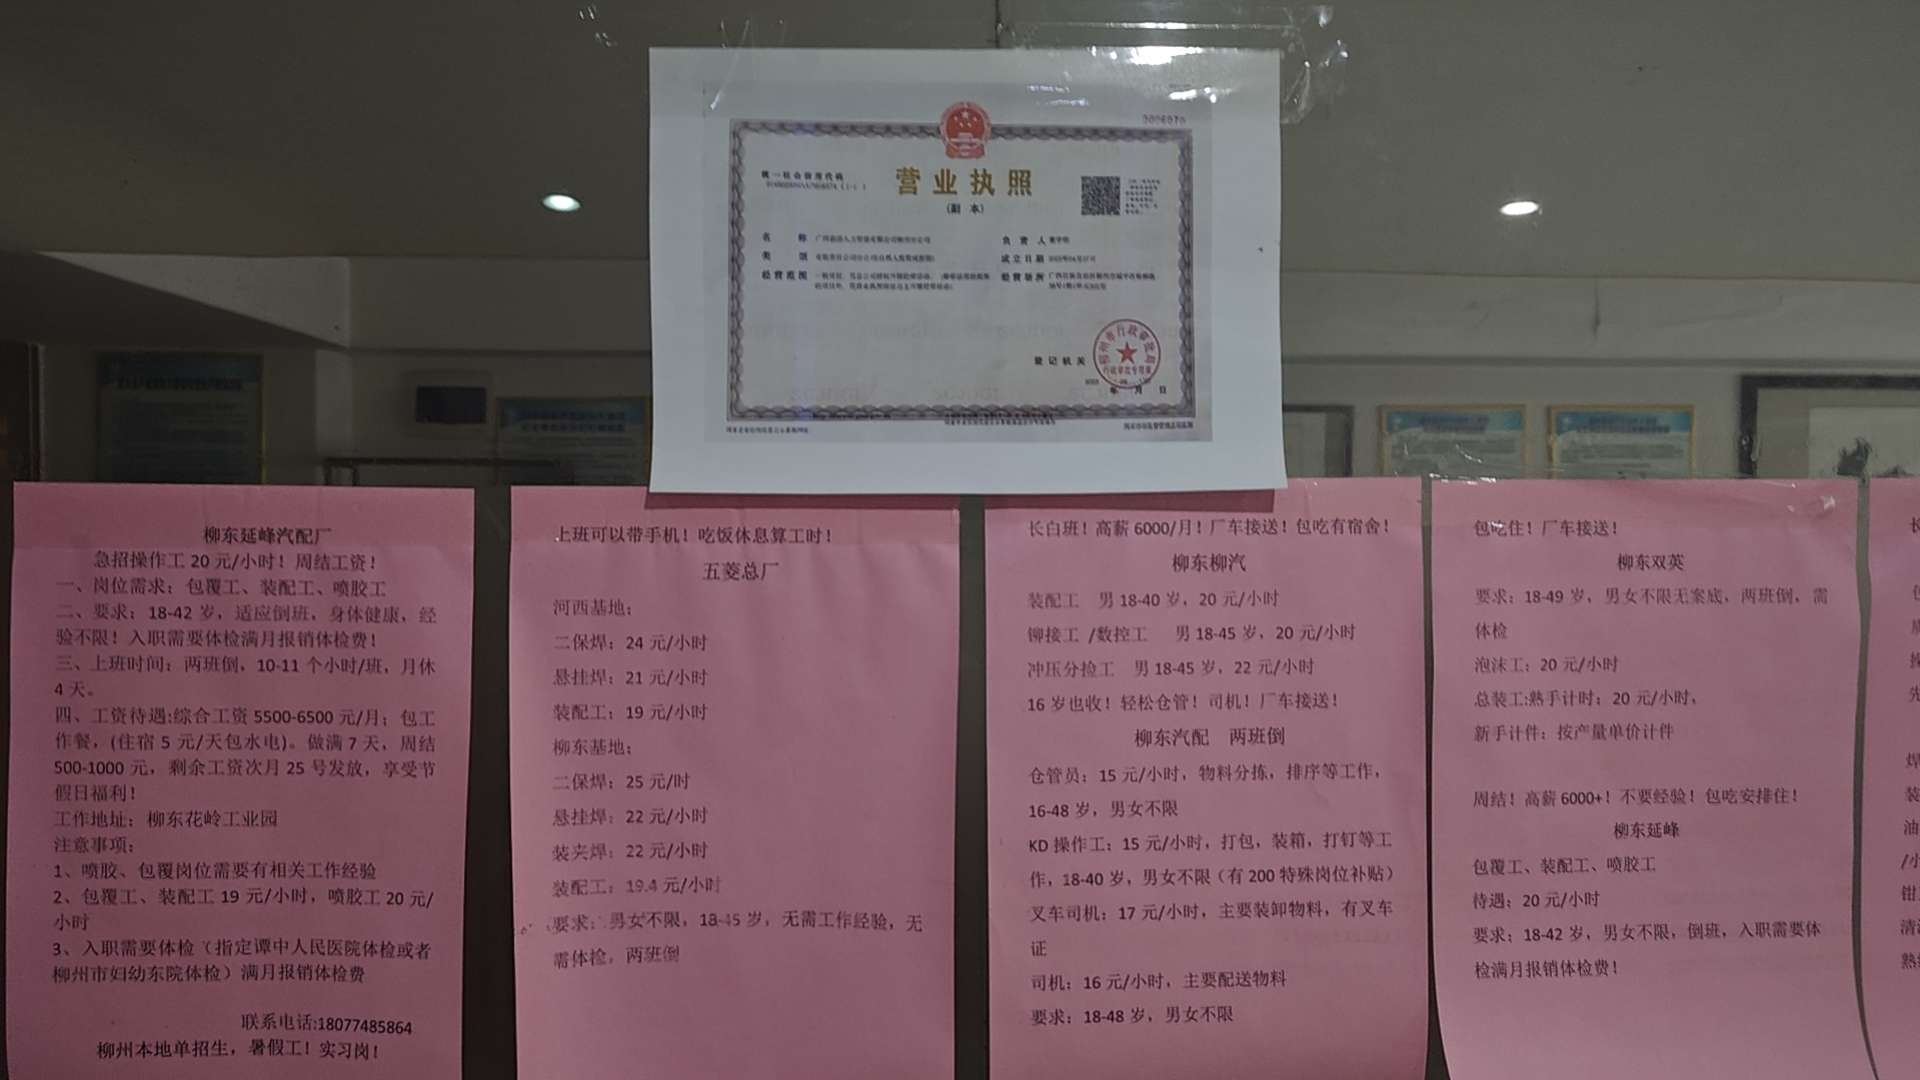 营业执照
(副 本)
统一社会信用代码
名 称
类 型
经营范围
负 责 人
成立日期
经营场所
登记机关
柳州市行政审批局
行政审批专用章
年 月 日
柳东延峰汽配厂
急招操作工 20 元/小时！周结工资！
一、岗位需求：包覆工、装配工、喷胶工
二、要求：18-42 岁，适应倒班，身体健康，经
验不限！入职需要体检满月报销体检费！
三、上班时间：两班倒，10-11 个小时/班，月休
4 天。
四、工资待遇:综合工资 5500-6500 元/月；包工
作餐，(住宿 5 元/天包水电)。做满 7 天，周结
500-1000 元，剩余工资次月 25 号发放，享受节
假日福利！
工作地址：柳东花岭工业园
注意事项：
1、喷胶、包覆岗位需要有相关工作经验
2、包覆工、装配工 19 元/小时，喷胶工 20 元/
小时
3、入职需要体检（指定谭中人民医院体检或者
柳州市妇幼东院体检）满月报销体检费
联系电话:18077485864
柳州本地单招生，暑假工！实习岗！
上班可以带手机！吃饭休息算工时！
五菱总厂
河西基地：
二保焊：24 元/小时
悬挂焊：21 元/小时
装配工：19 元/小时
柳东基地：
二保焊：25 元/时
悬挂焊：22 元/小时
装夹焊：22 元/小时
装配工：19.4 元/小时
要求：男女不限，18-45 岁，无需工作经验，无
需体检，两班倒
长白班！高薪 6000/月！厂车接送！包吃有宿舍！
柳东柳汽
装配工 男 18-40 岁，20 元/小时
铆接工 /数控工 男 18-45 岁，20 元/小时
冲压分捡工 男 18-45 岁，22 元/小时
16 岁也收！轻松仓管！司机！厂车接送！
柳东汽配 两班倒
仓管员：15 元/小时，物料分拣，排序等工作，
16-48 岁，男女不限
KD 操作工：15 元/小时，打包，装箱，打钉等工
作，18-40 岁，男女不限（有 200 特殊岗位补贴）
叉车司机：17 元/小时，主要装卸物料，有叉车
证
司机：16 元/小时，主要配送物料
要求：18-48 岁，男女不限
包吃住！厂车接送！
柳东双英
要求：18-49 岁，男女不限无案底，两班倒，需
体检
泡沫工：20 元/小时
总装工:熟手计时：20 元/小时，
新手计件：按产量单价计件
周结！高薪 6000+！不要经验！包吃安排住！
柳东延峰
包覆工、装配工、喷胶工
待遇：20 元/小时
要求：18-42 岁，男女不限，倒班，入职需要体
检满月报销体检费！